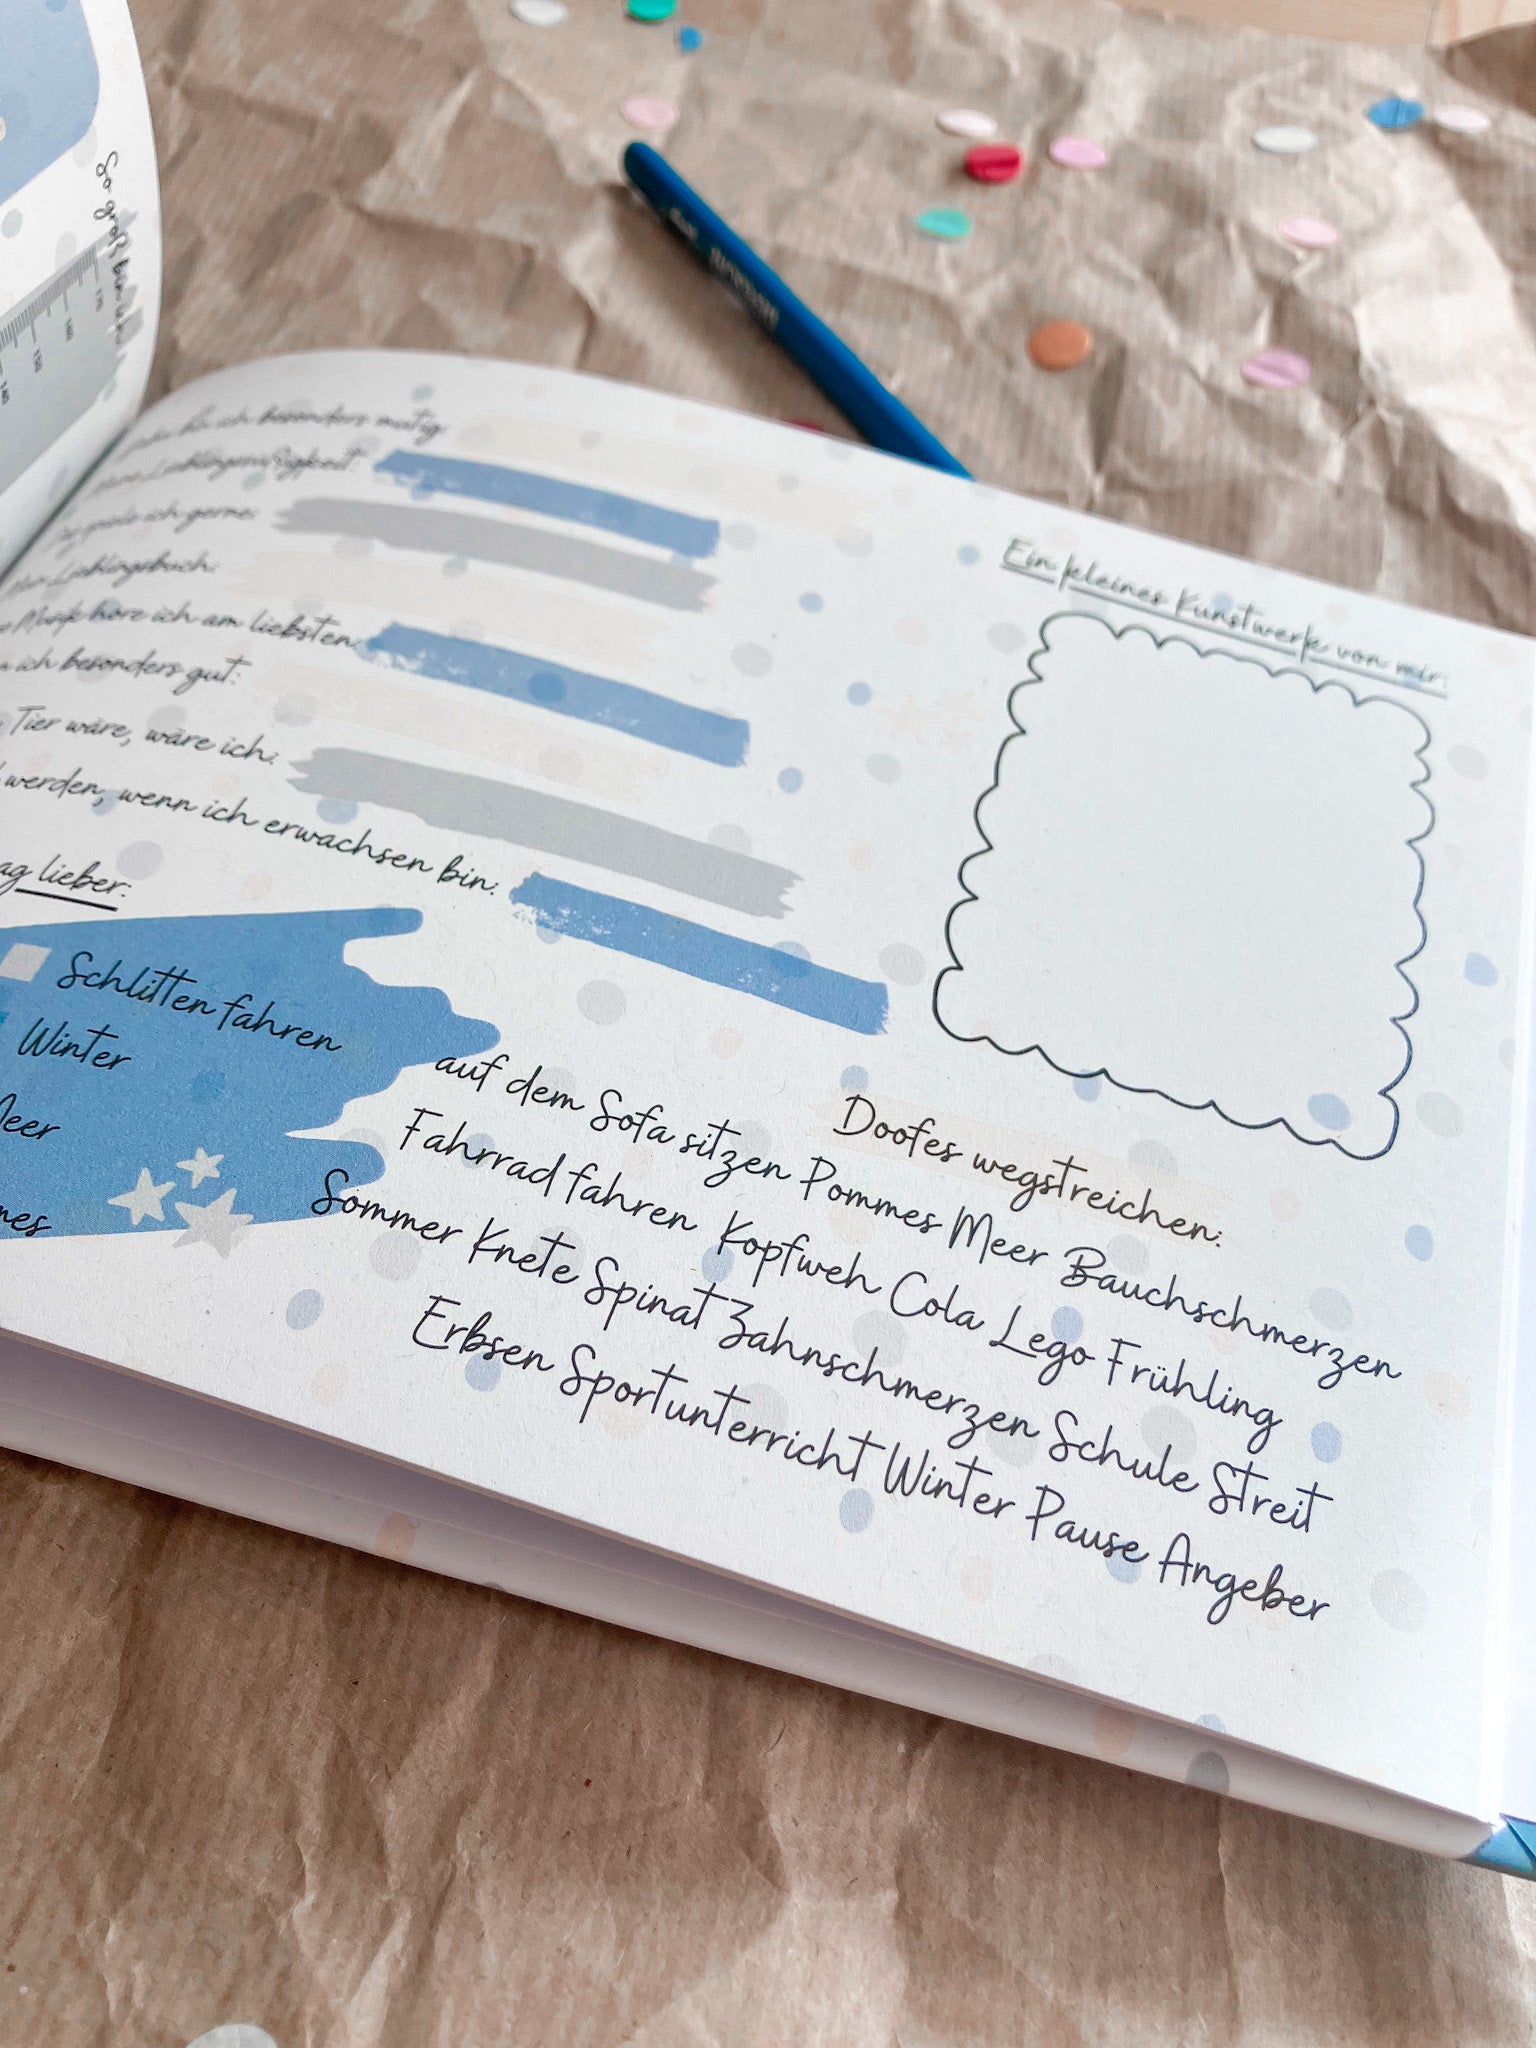 So groß bin ich
bin ich besonders mutig
Meine Lieblingssüßigkeit:
spiele ich gerne:
Mein Lieblingsbuch:
Musik höre ich am liebsten:
ich besonders gut:
Tier wäre, wäre ich:
werden, wenn ich erwachsen bin:
lieber:
Schlitten fahren
Winter
Ein kleines Kunstwerk von mir:
Doofes wegstreichen:
auf dem Sofa sitzen Pommes Meer Bauchschmerzen
Fahrrad fahren Kopfweh Cola Lego Frühling
Sommer Knete Spinat Zahnschmerzen Schule Streit
Erbsen Sportunterricht Winter Pause Angeber